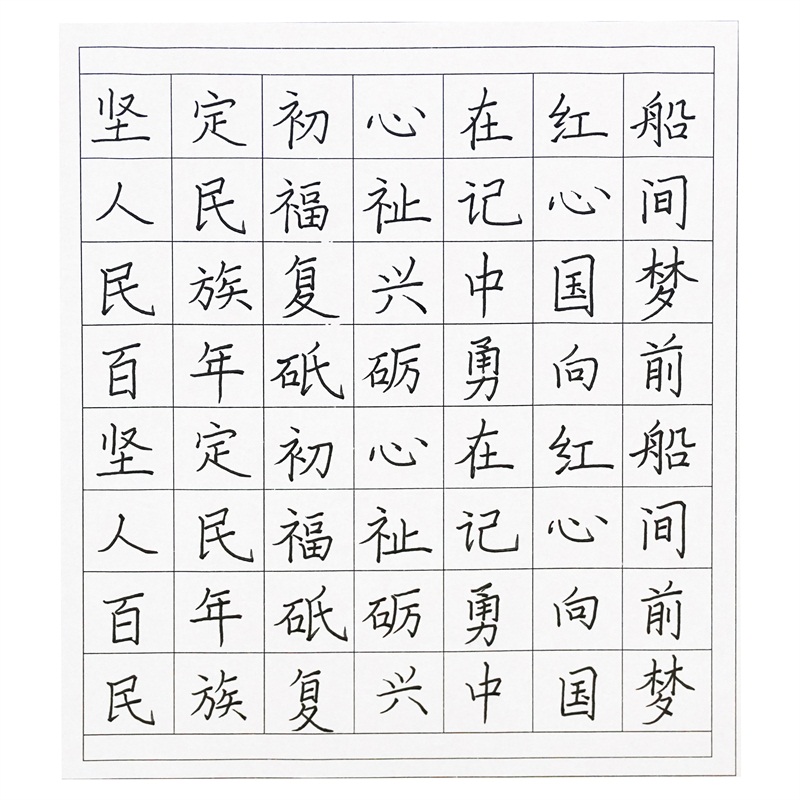 坚定初心在红船
人民福祉记心间
民族复兴中国梦
百年砥砺勇向前
坚定初心在红船
人民福祉记心间
百年砥砺勇向前
民族复兴中国梦